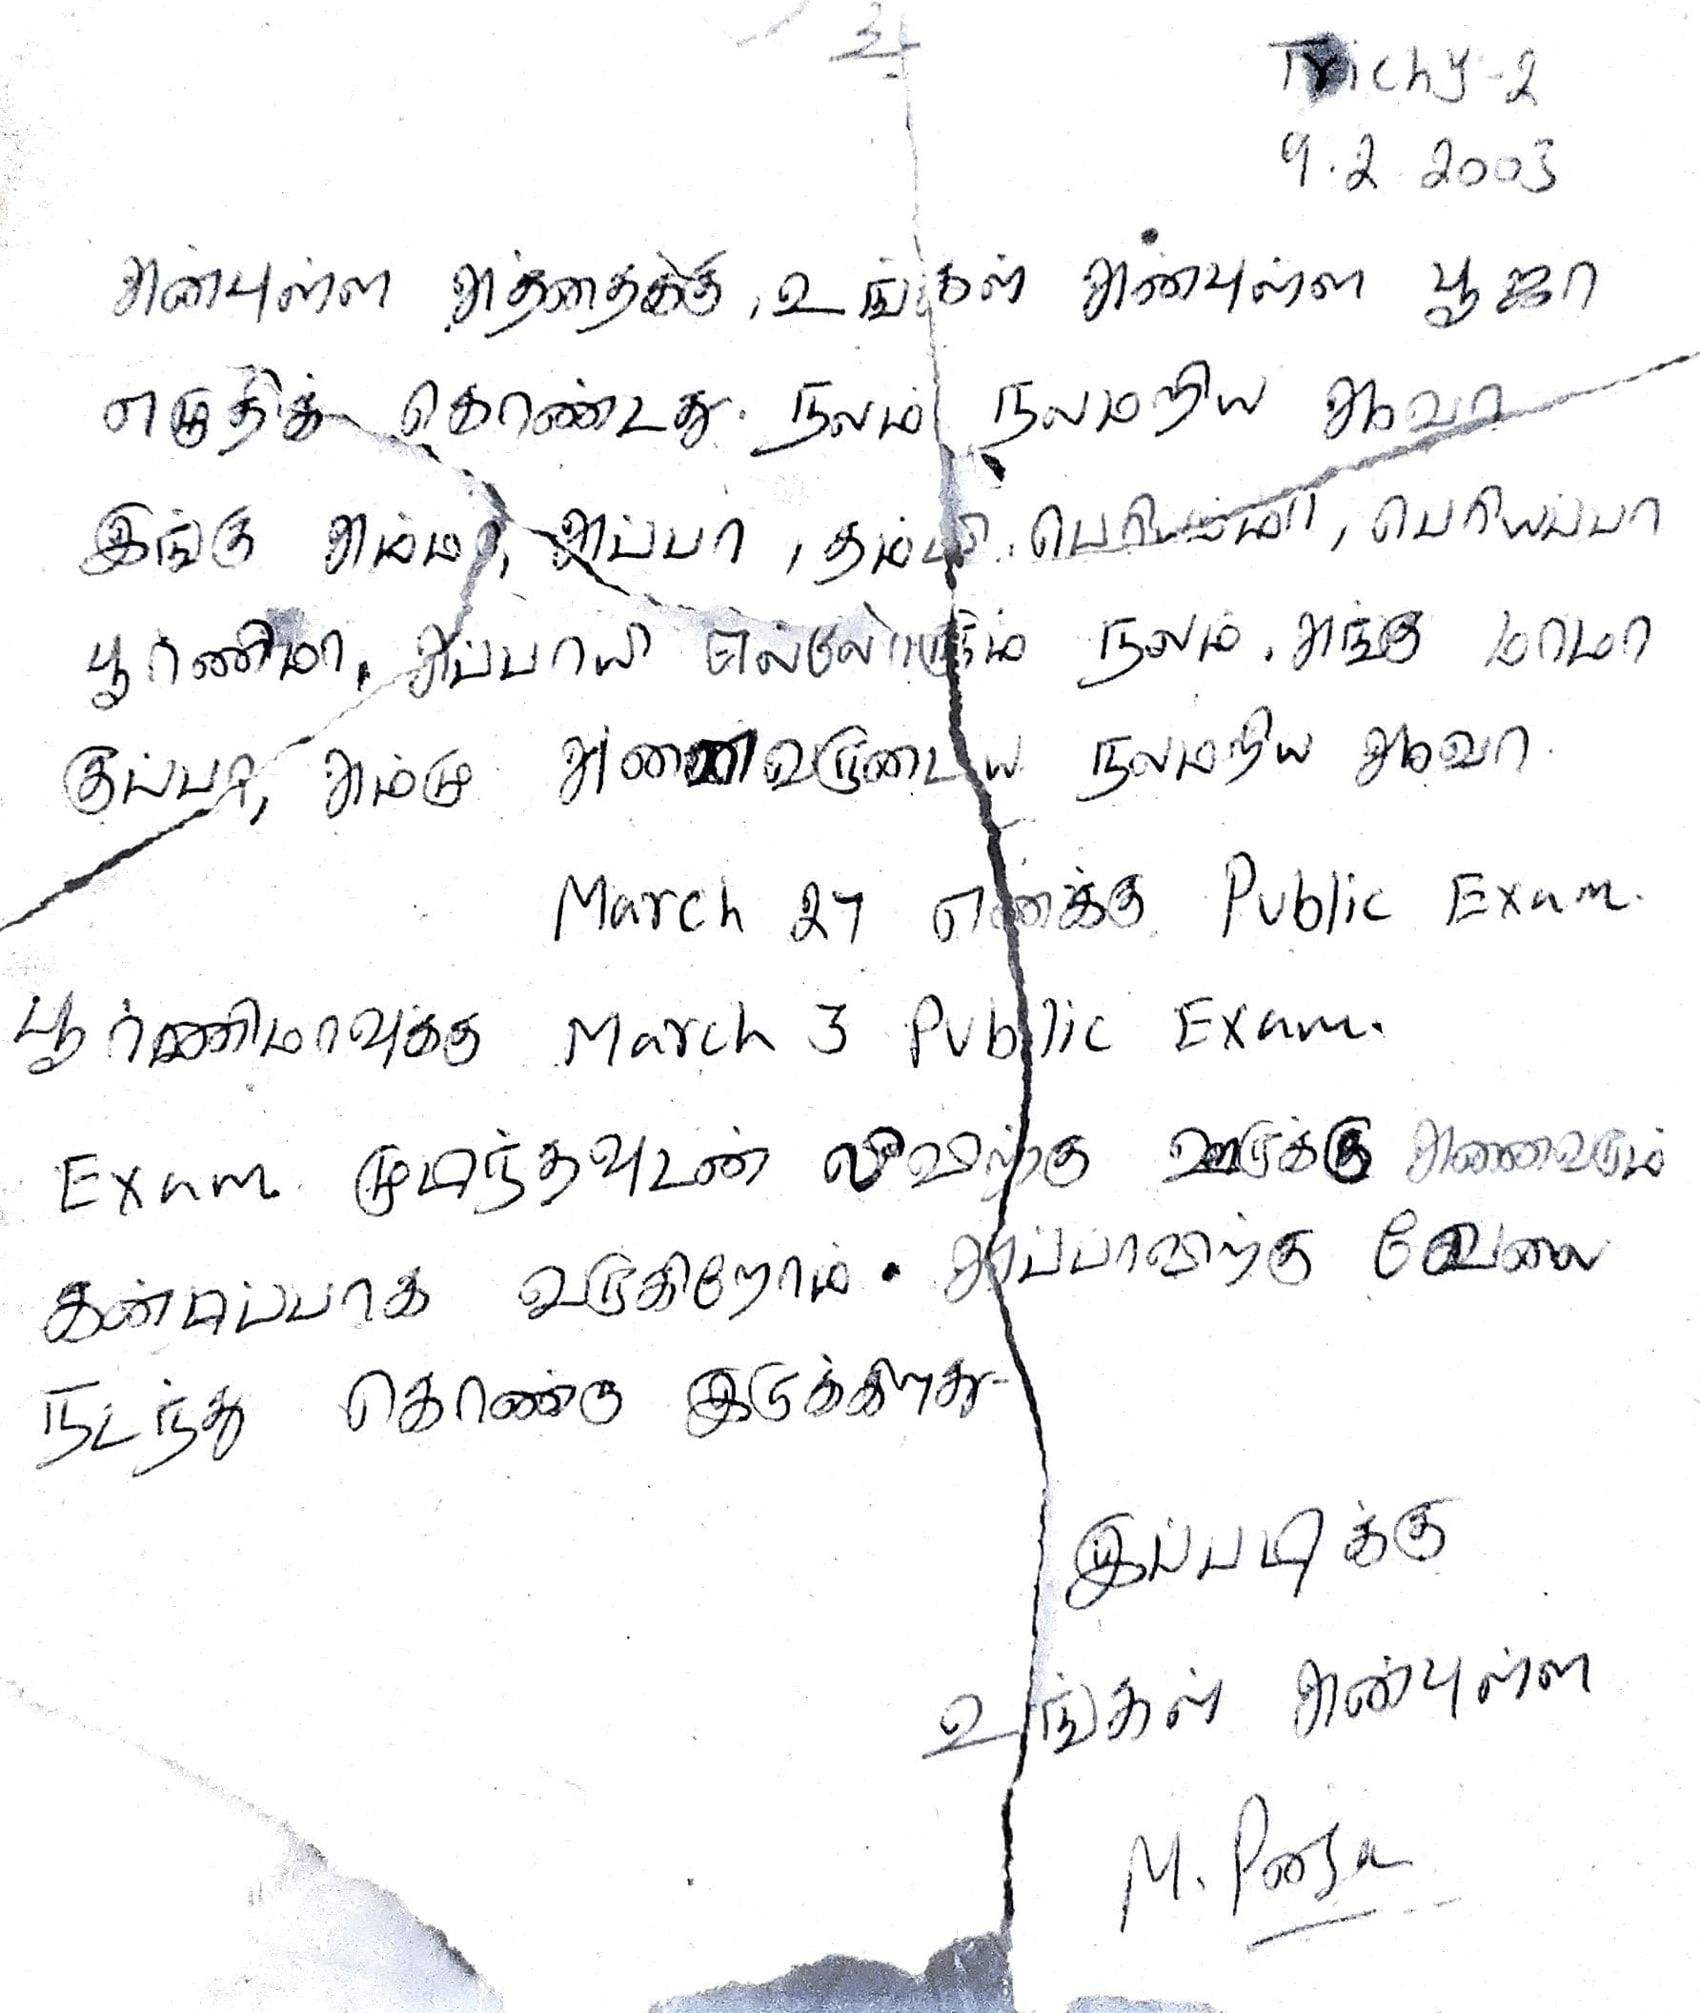 உ
Trichy-2
9.2.2003
அன்புள்ள அத்தைக்கு, உங்கள் அன்புள்ள பூஜா
எழுதிக் கொண்டது. நலம் நலமறிய ஆவா
இங்கு அம்மா, அப்பா, தம்பி, பெரியம்மா, பெரியப்பா
பூர்ணிமா, அப்பாயி எல்லோரும் நலம். அங்கு மாமா
குப்பா, அம்மு அனைவருடைய நலமறிய ஆவா.
March 27 எனக்கு Public Exam.
பூர்ணிமாவுக்கு March 3 Public Exam.
Exam முடிந்தவுடன் லீவிற்கு ஊருக்கு அனைவரும்
கன்டிப்பாக வருகிறோம். அப்பாவிற்கு வேலை
நடந்து கொண்டு இருக்கிறது-
இப்படிக்கு
உங்கள் அன்புள்ள
M. Pooja